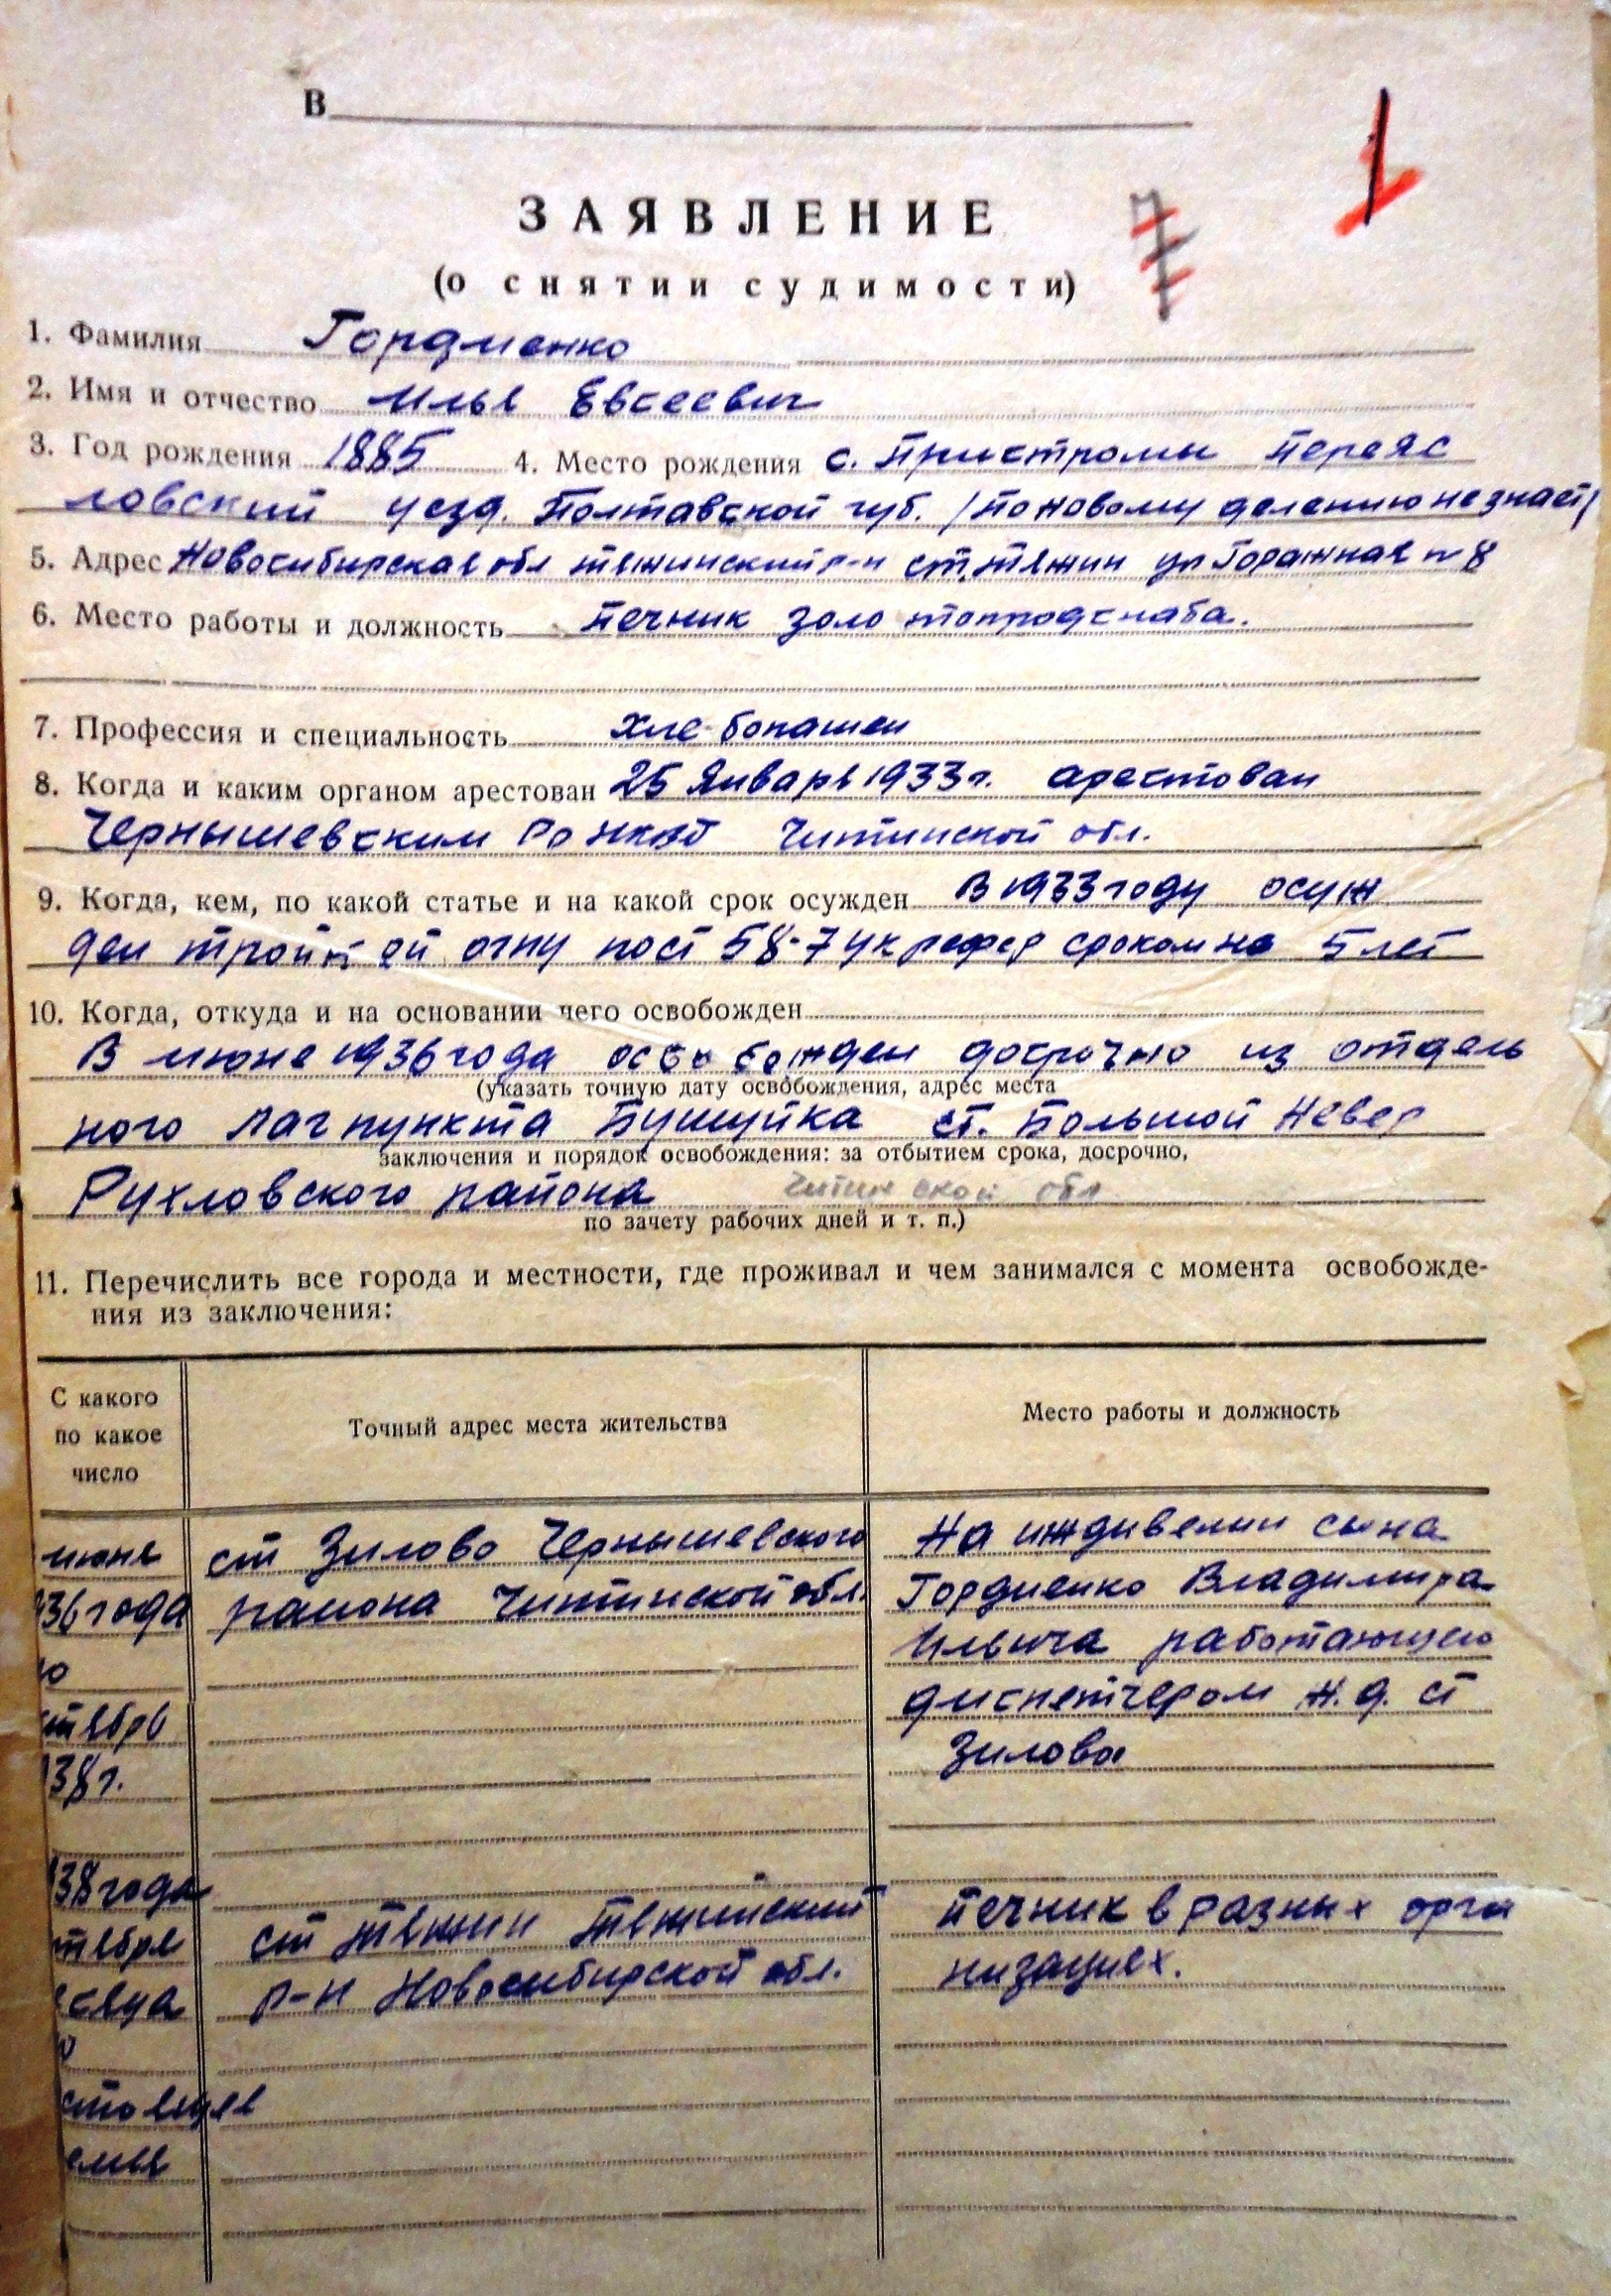 В
1
ЗАЯВЛЕНИЕ
7
(о снятии судимости)
1. Фамилия Гордиенко
2. Имя и отчество Илья Евсеевич
3. Год рождения 1885 4. Место рождения с. Пристромы Переяс
ловский уезд. Полтавской губ. /по новому делению не знает/
5. Адрес Новосибирская обл тяжинский р-н ст. тяжин ул Горажная № 8
6. Место работы и должность печник золотопродснаба.
7. Профессия и специальность хлебопашец
8. Когда и каким органом арестован 25 Января 1933 г. арестован
Чернышевским Ро НКВД Читинской обл.
9. Когда, кем, по какой статье и на какой срок осужден В 1933 году осуж
ден тройкой огпу по ст 58-7 ук рсфср сроком на 5 лет
10. Когда, откуда и на основании чего освобожден
В июне 1936 года освобожден досрочно из отдель
(указать точную дату освобождения, адрес места
ного лагпункта Бушуйка ст. Большой Невер
заключения и порядок освобождения: за отбытием срока, досрочно,
Рухловского района Читинской обл
по зачету рабочих дней и т. п.)
11. Перечислить все города и местности, где проживал и чем занимался с момента освобожде-
ния из заключения:
С какого
по какое
число
Точный адрес места жительства
Место работы и должность
июня
36 года
по
тябрь
38 г.
ст Зилово Чернышевского
района Читинской обл.
На иждивении сына
Гордиенко Владимира
Ильича работающего
диспетчером ж.д. ст
Зилова
38 года
тября
есяца
стоящее
емя
ст тяжин Тяжинский
р-н Новосибирской обл.
печник в разных орга
низациях.